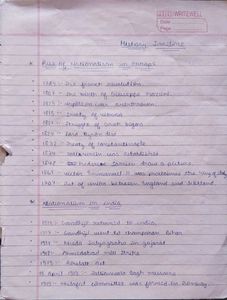 WRITEWELL
Date
Page
History Timeline
* Rise of Nationalism in Europe
- The french revolution.
- 1807- The birth of Giuseppe Mazzini.
- Napoleon was
- 1815- Treaty of Vienna
- Struggle of
- 1824- Lord Byron died
- 1832- Treaty of Constantinople
- 1834- Zollverein was established
- 1848- Frederic Sorrieu drew a picture.
- 1861- Victor Emmanuel II was proclaimed the king of
- 1707- Act of union between England and Scotland.
* Nationalism in India
- Gandhiji returned to india.
- Gandhiji went to champaran Bihar
- Kheda Satyagraha in gujarat
- 1918- Ahmedabad mill strike
- 1919- Rowlatt Act
- 13 April 1919- Jallianwala bagh massacre
- 1919- Khilafat committee was formed in Bombay.